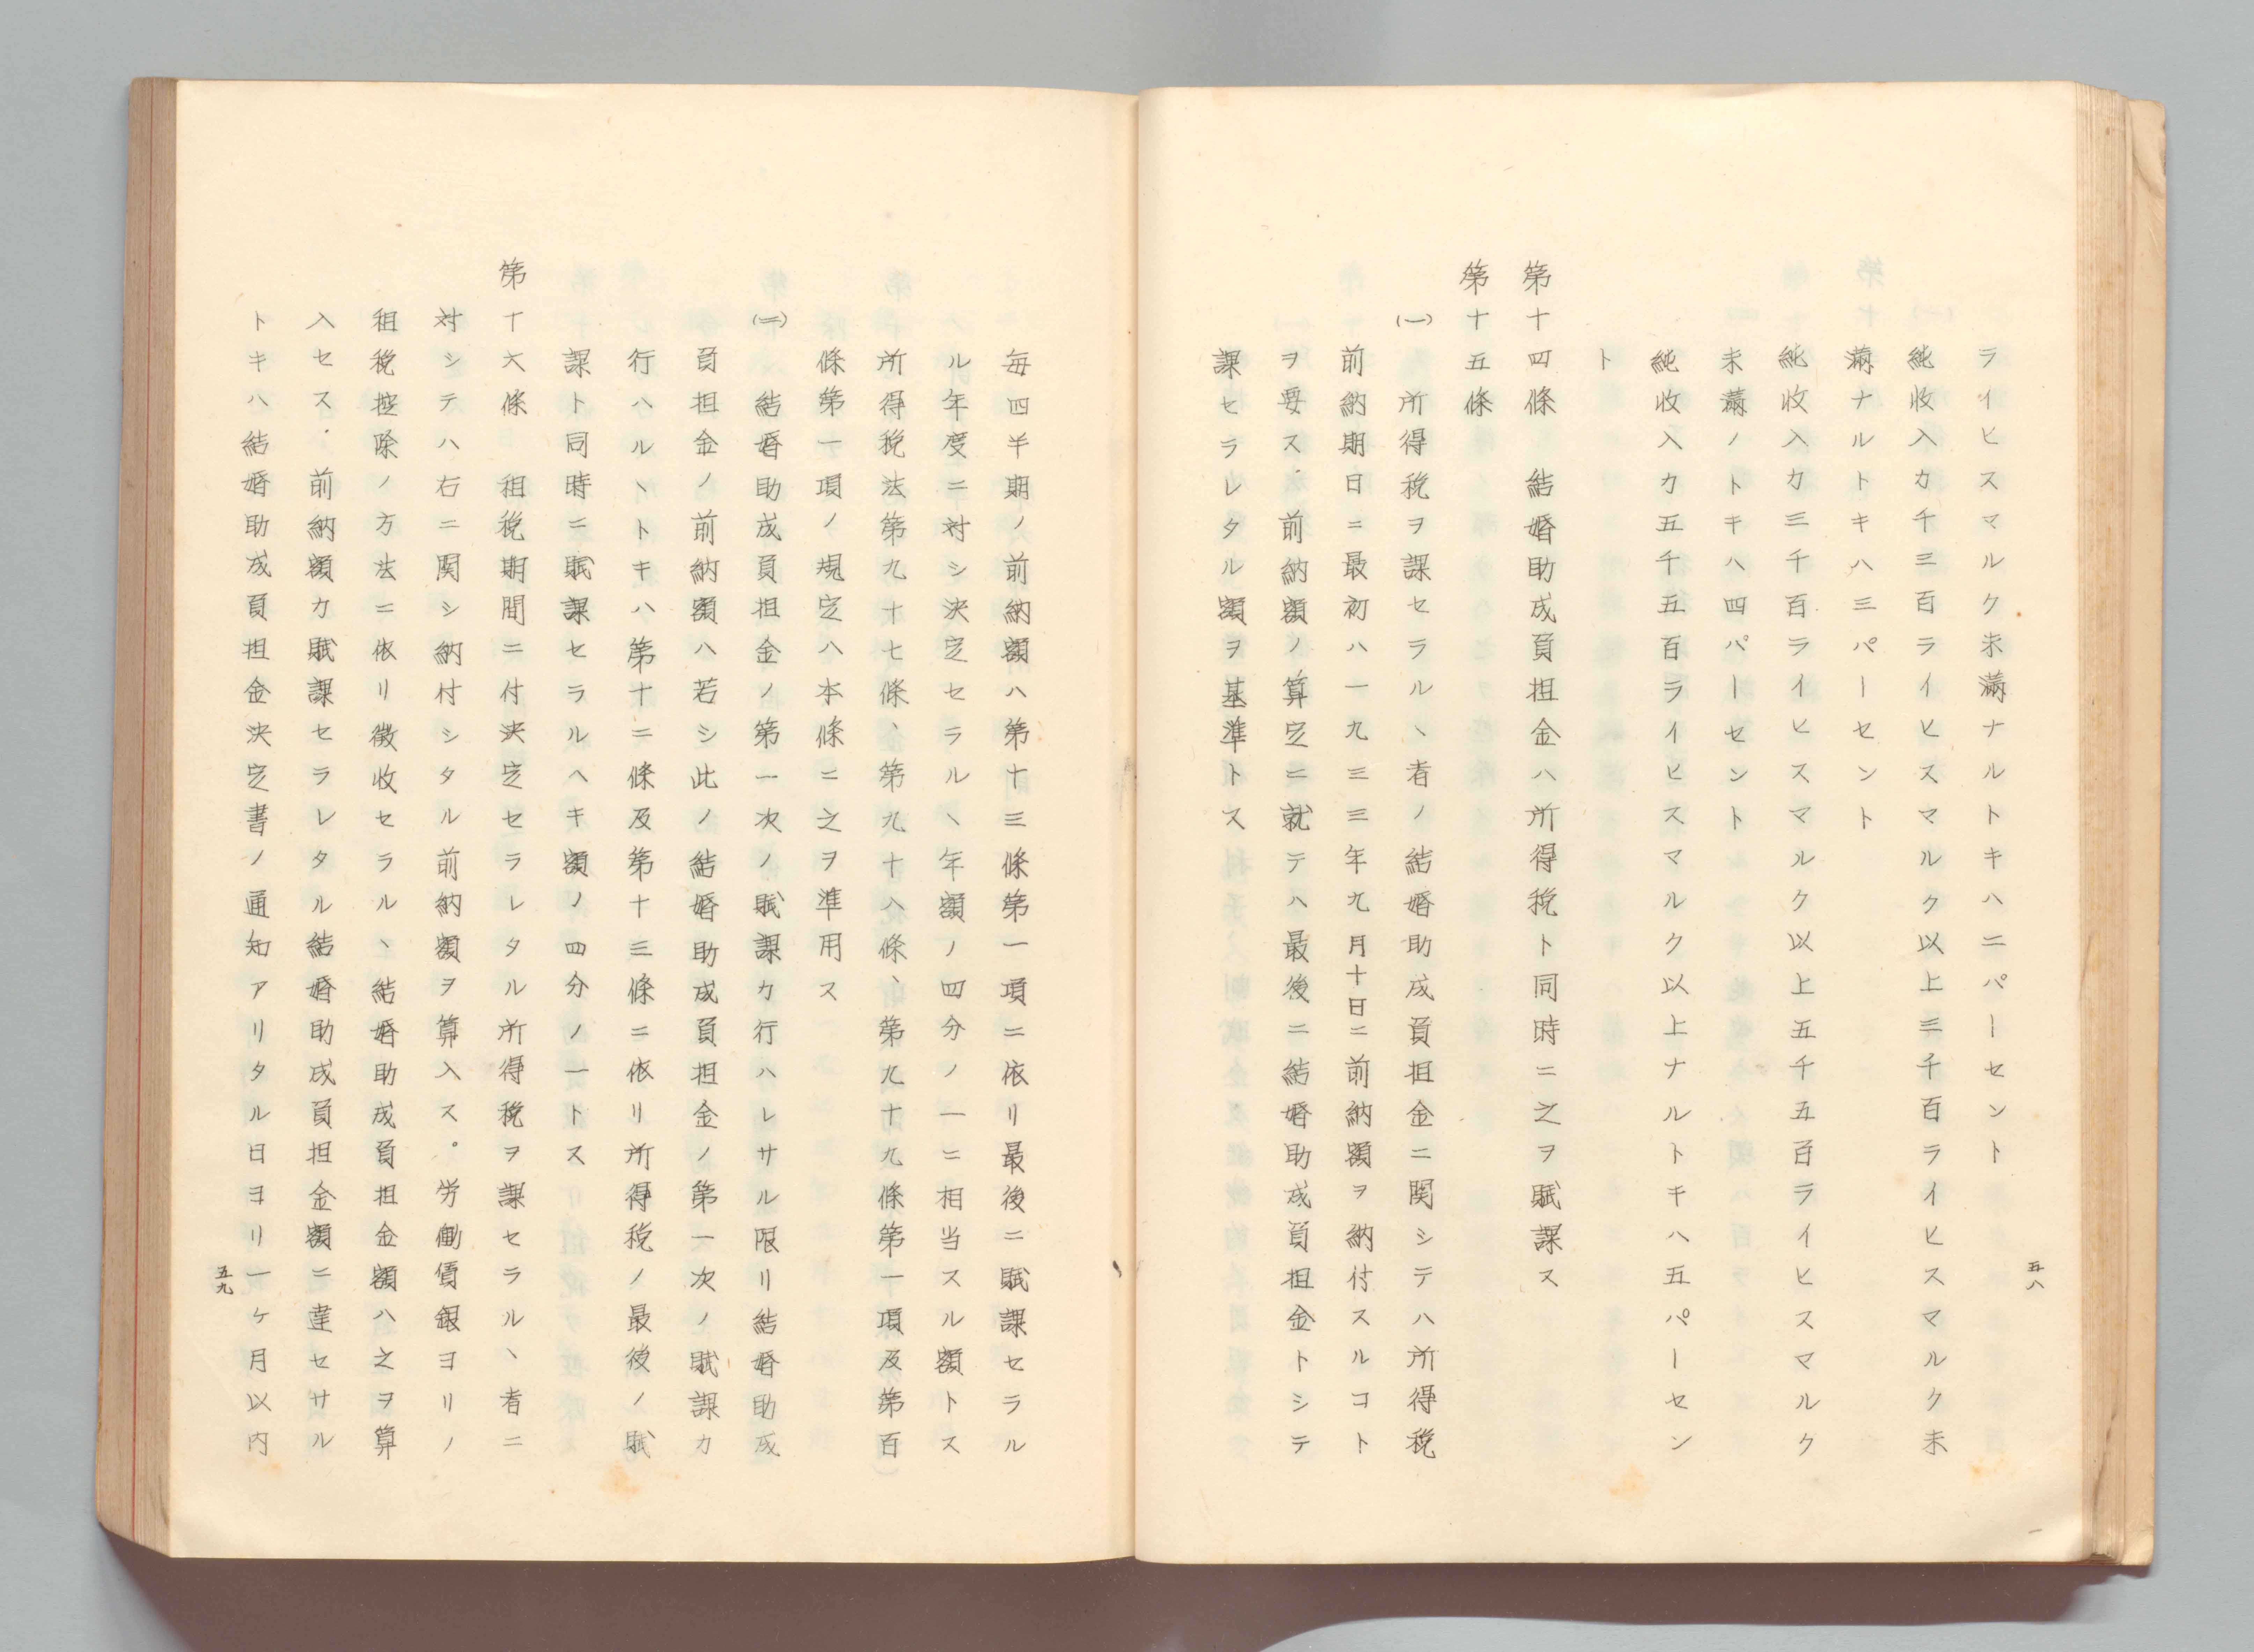 ライヒスマルク未満ナルトキハ二パーセント
純收入カ千三百ライヒスマルク以上三千百ライヒスマルク未
満ナルトキハ三パーセント
純收入カ三千百ライヒスマルク以上五千五百ライヒスマルク
未満ノトキハ四パーセント
純收入カ五千五百ライヒスマルク以上ナルトキハ五パーセン
ト
第十四條　結婚助成負担金ハ所得税ト同時ニ之ヲ賦課ス
第十五條
(一)　所得税ヲ課セラルヽ者ノ結婚助成負担金ニ関シテハ所得税
前納期日ニ最初ハ一九三三年九月十日ニ前納額ヲ納付スルコト
ヲ要ス．前納額ノ算定ニ就テハ最後ニ結婚助成負担金トシテ
課セラレタル額ヲ基準トス
五八
毎四半期ノ前納額ハ第十三條第一項ニ依リ最後ニ賦課セラル
ル年度ニ対シ決定セラルヽ年額ノ四分ノ一ニ相当スル額トス
所得税法第九十七條、第九十八條、第九十九條第一項及第百
條第一項ノ規定ハ本條ニ之ヲ準用ス
(二)　結婚助成負担金ノ第一次ノ賦課カ行ハレサル限リ結婚助成
負担金ノ前納額ハ若シ此ノ結婚助成負担金ノ第一次ノ賦課カ
行ハルヽトキハ第十二條及第十三條ニ依リ所得税ノ最後ノ賦
課ト同時ニ賦課セラルヘキ額ノ四分ノ一トス
第十六條　租税期間ニ付決定セラレタル所得税ヲ課セラルヽ者ニ
対シテハ右ニ関シ納付シタル前納額ヲ算入ス。労働賃銀ヨリノ
租税控除ノ方法ニ依リ徴收セラルヽ結婚助成負担金額ハ之ヲ算
入セス．前納額カ賦課セラレタル結婚助成負担金額ニ達セサル
トキハ結婚助成負担金決定書ノ通知アリタル日ヨリ一ケ月以内
五九